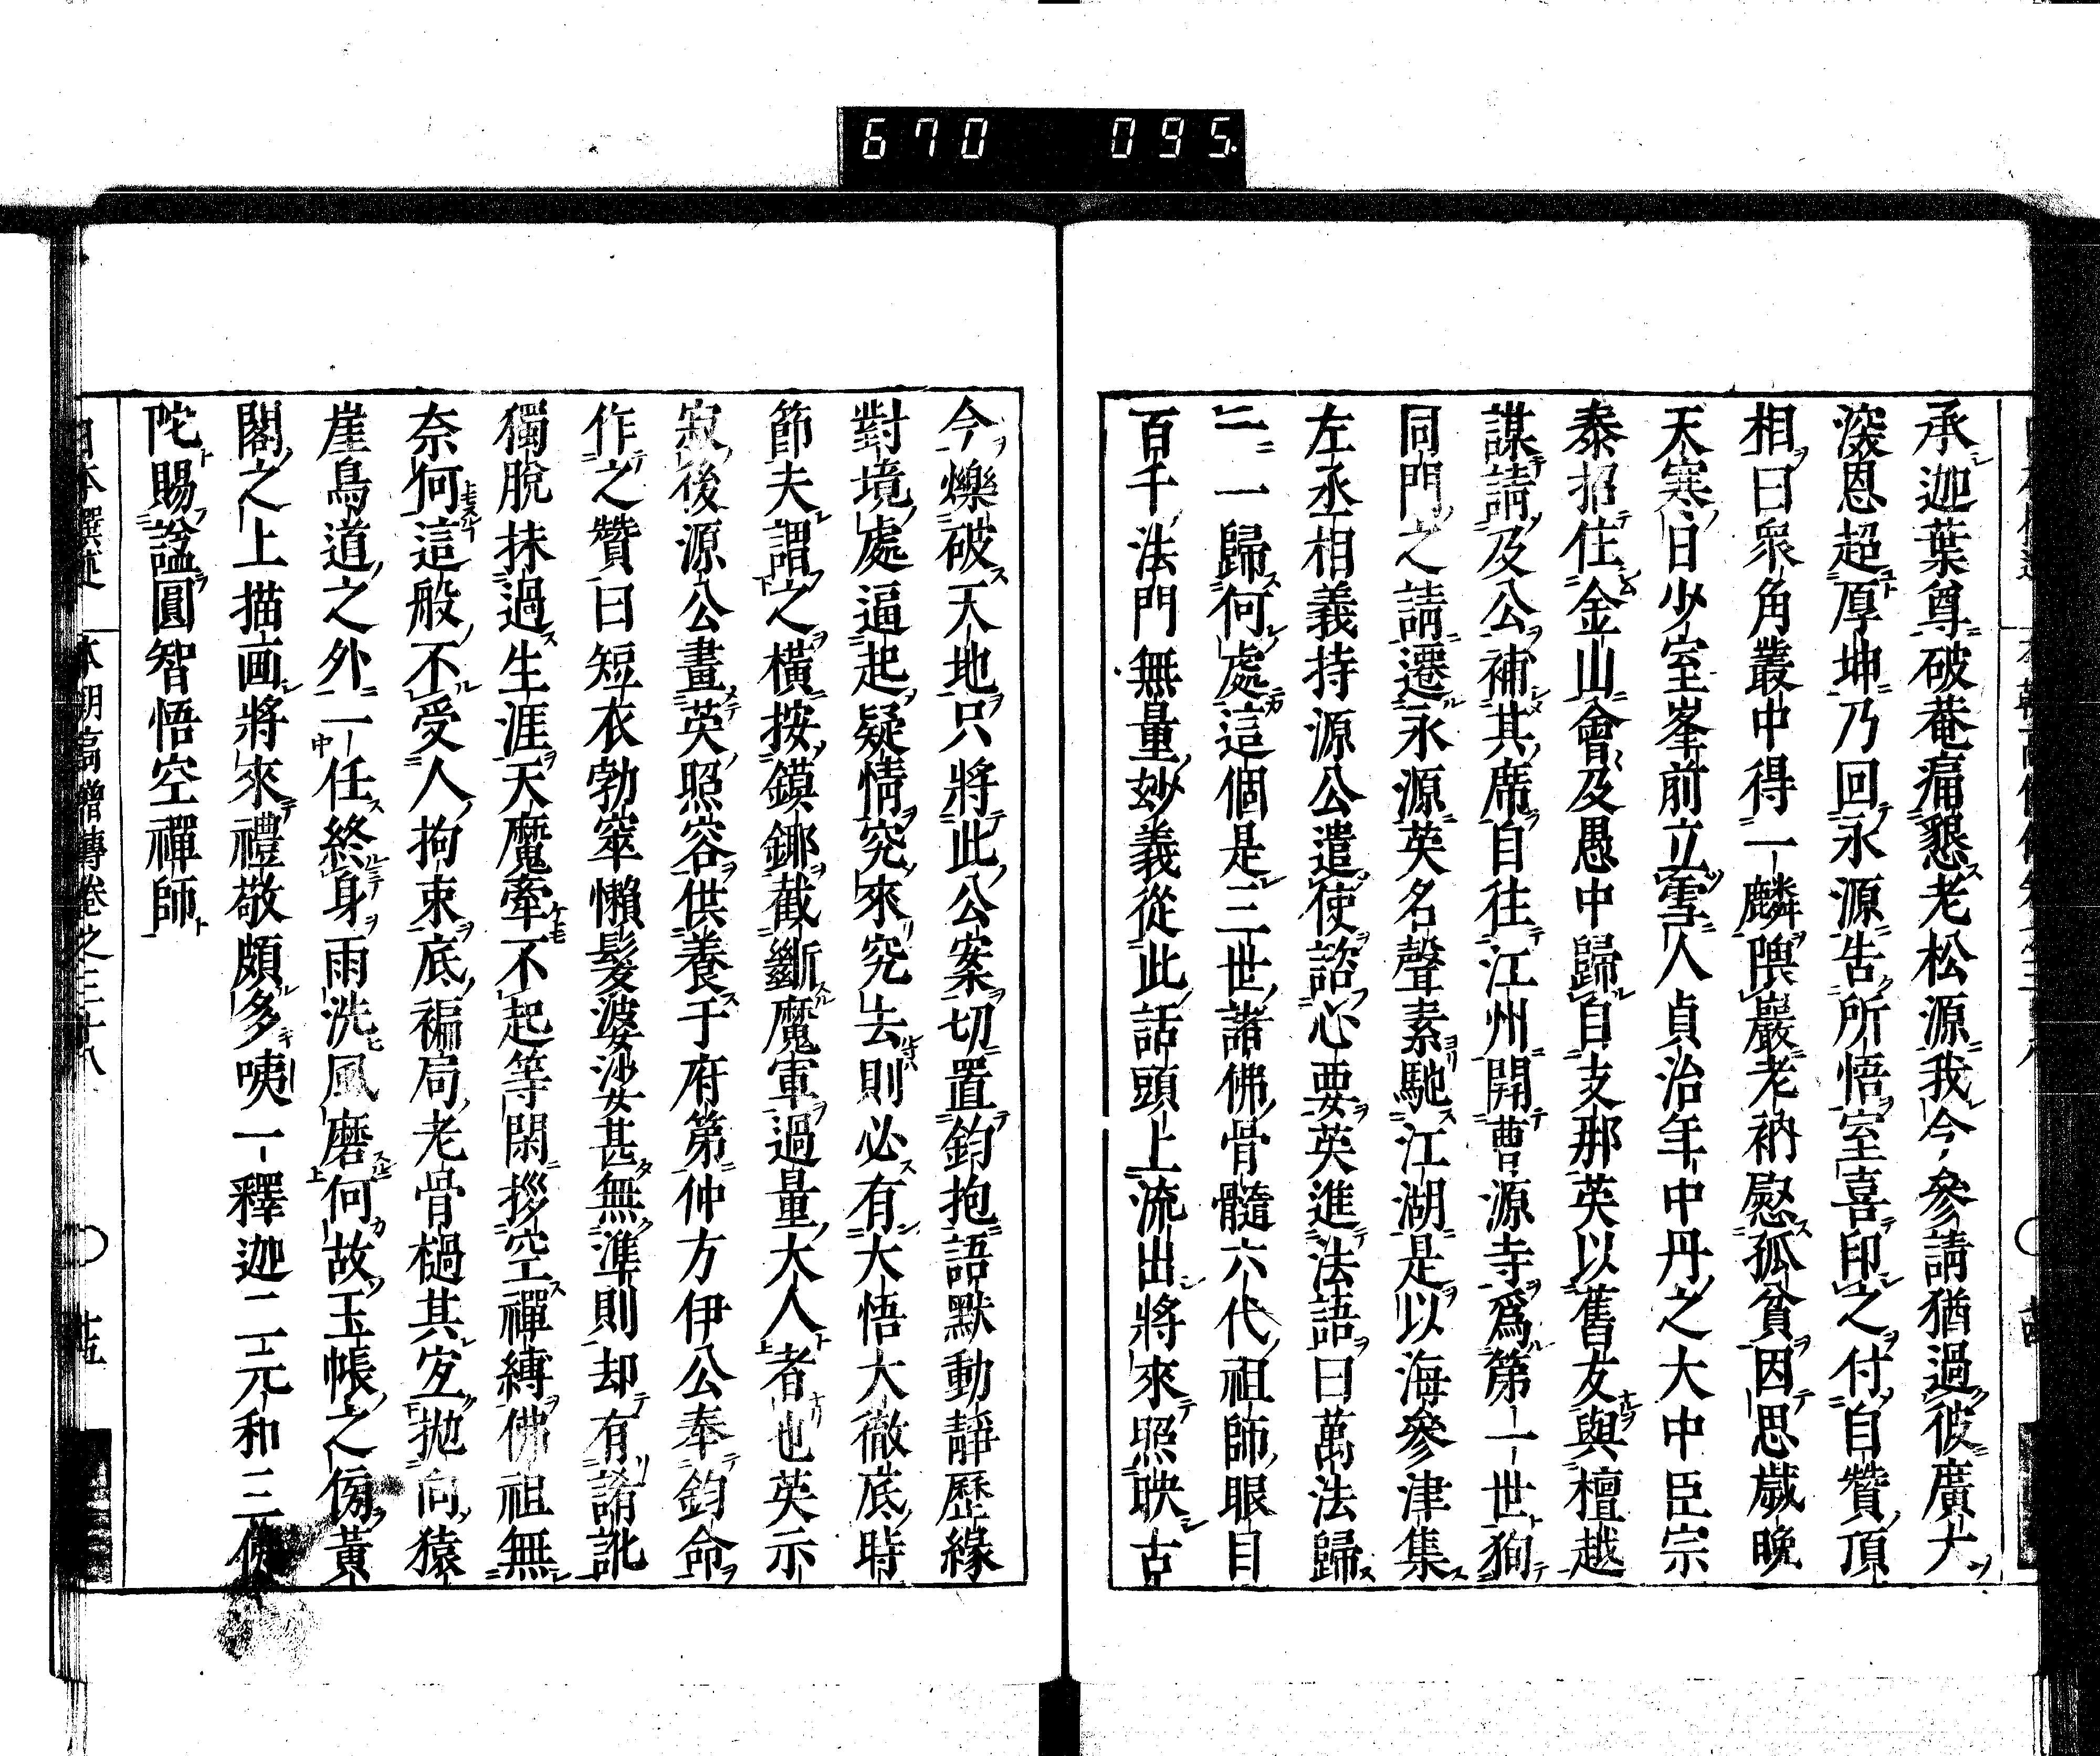 670 095.
承迦葉尊破菴痛懇老松源我今參請猶過彼廣大
深恩超厚坤乃回永源告所悟室喜印之付自贊頂
相曰衆角叢中得一麟隈巖老衲慰孤貧因思歲晚
天寒日少室峯前立雪人貞治年中丹之大中臣宗
泰招住金山會及愚中歸自支那英以舊友與檀越
謀請及公補其席自往江州開曹源寺爲第一世狥
同門之請遷永源英名聲素馳江湖是以海參津集
左丞相義持源公遣使諮心要英進法語曰萬法歸
一一歸何處這個是三世諸佛骨髓六代祖師眼目
百千法門無量妙義從此話頭上流出將來照映古
今爍破天地只將此公案切置鈞抱語默動靜歷緣
對境處逼起疑情究來究去則必有大悟大徹底時
節夫謂之橫按鏌鋣截斷魔軍過量大人者也英示
寂後源公畫英照容供養于府第仲方伊公奉鈞命
作之贊曰短衣勃窣懶髮婆娑甚無準則却有誵訛
獨脫抹過生涯天魔牽不起等閑拶空禪縛佛祖無
奈何這般不受人拘束底褊局老骨檛其宜拋向猿
崖鳥道之外一任終身雨洗風磨何故玉帳之傍黃
閣之上描画將來禮敬頗多咦一釋迦二元和三佛
陀賜諡圓智悟空禪師
日本撰述 本朝高僧傳卷之三十八 〇 廿五